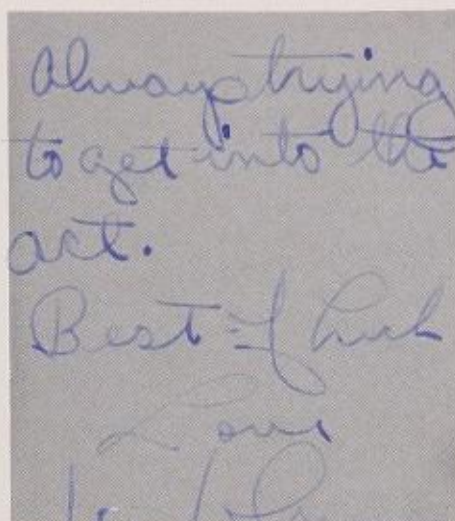 Always trying
to get into the
act.
Best of Luck
Love